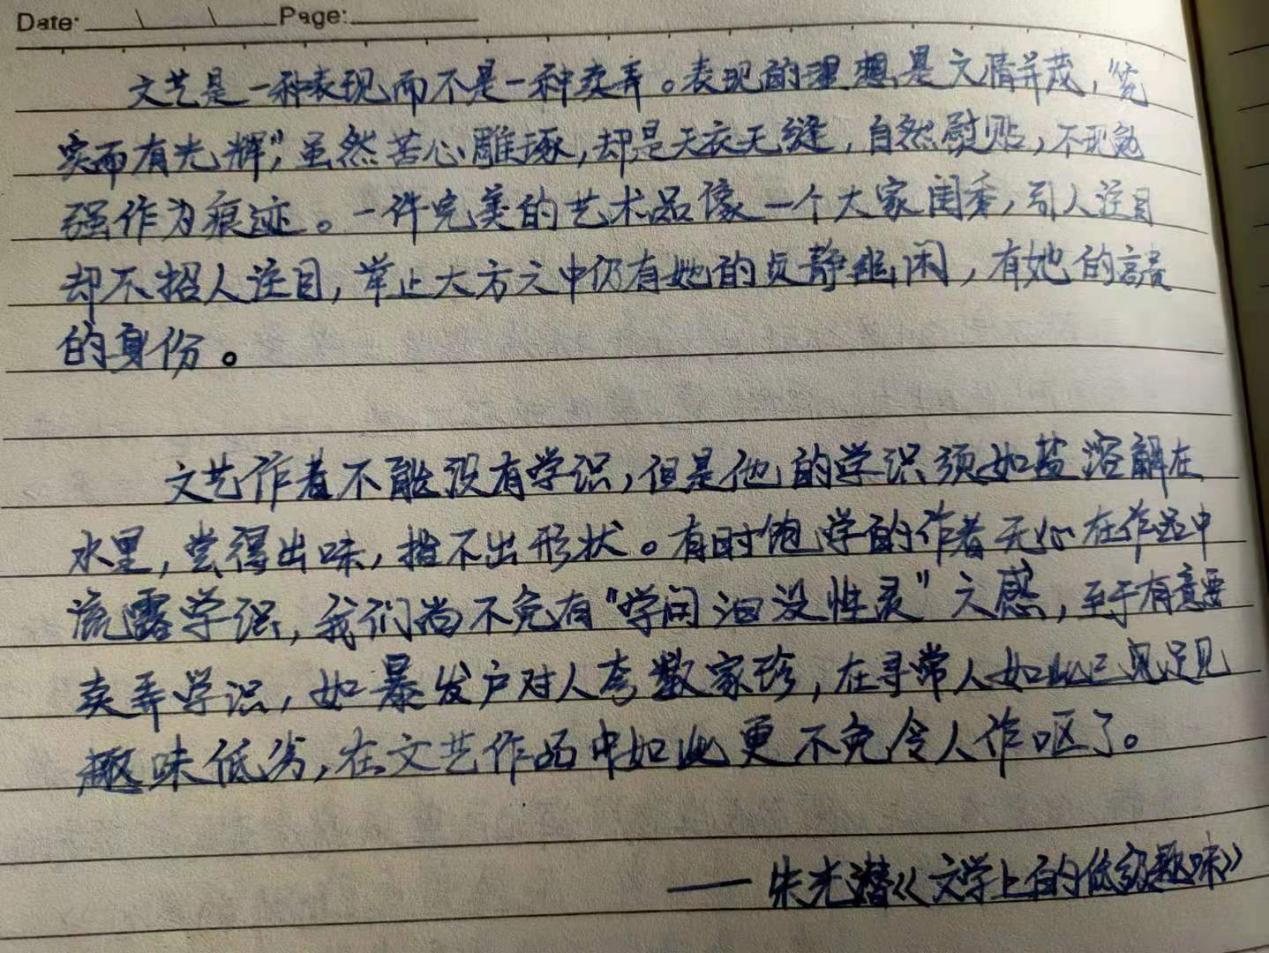 Date: Page:
文艺是一种表现而不是一种卖弄。表现的理想是文情并茂，“充
实而有光辉”，虽然苦心雕琢，却是天衣无缝，自然熨贴，不现勉
强作为痕迹。一件完美的艺术品像一个大家闺秀，引人注目
却不招人注目，举止大方之中仍有她的贞静幽闲，有她的高贵
的身份。
文艺作者不能没有学识，但是他的学识须如盐溶解在
水里，尝得出味，指不出形状。有时饱学的作者无心在作品中
流露学识，我们尚不免有“学问汩没性灵”之感，至于有意要
卖弄学识，如暴发户对人夸数家珍，在寻常人如此已见足见
趣味低劣，在文艺作品中如此更不免令人作呕了。
——朱光潜《文学上的低级趣味》